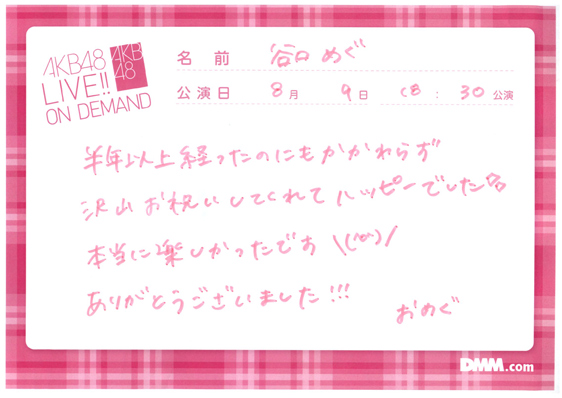 AKB48
LIVE!!
ON DEMAND
AKB
48
名前 谷口 めぐ
公演日 8月 9日 18:30公演
半年以上経ったのにもかかわらず
沢山お祝いしてくれてハッピーでした
本当に楽しかったです \(^o^)/
ありがとうございました!!!
おめぐ
DMM.com